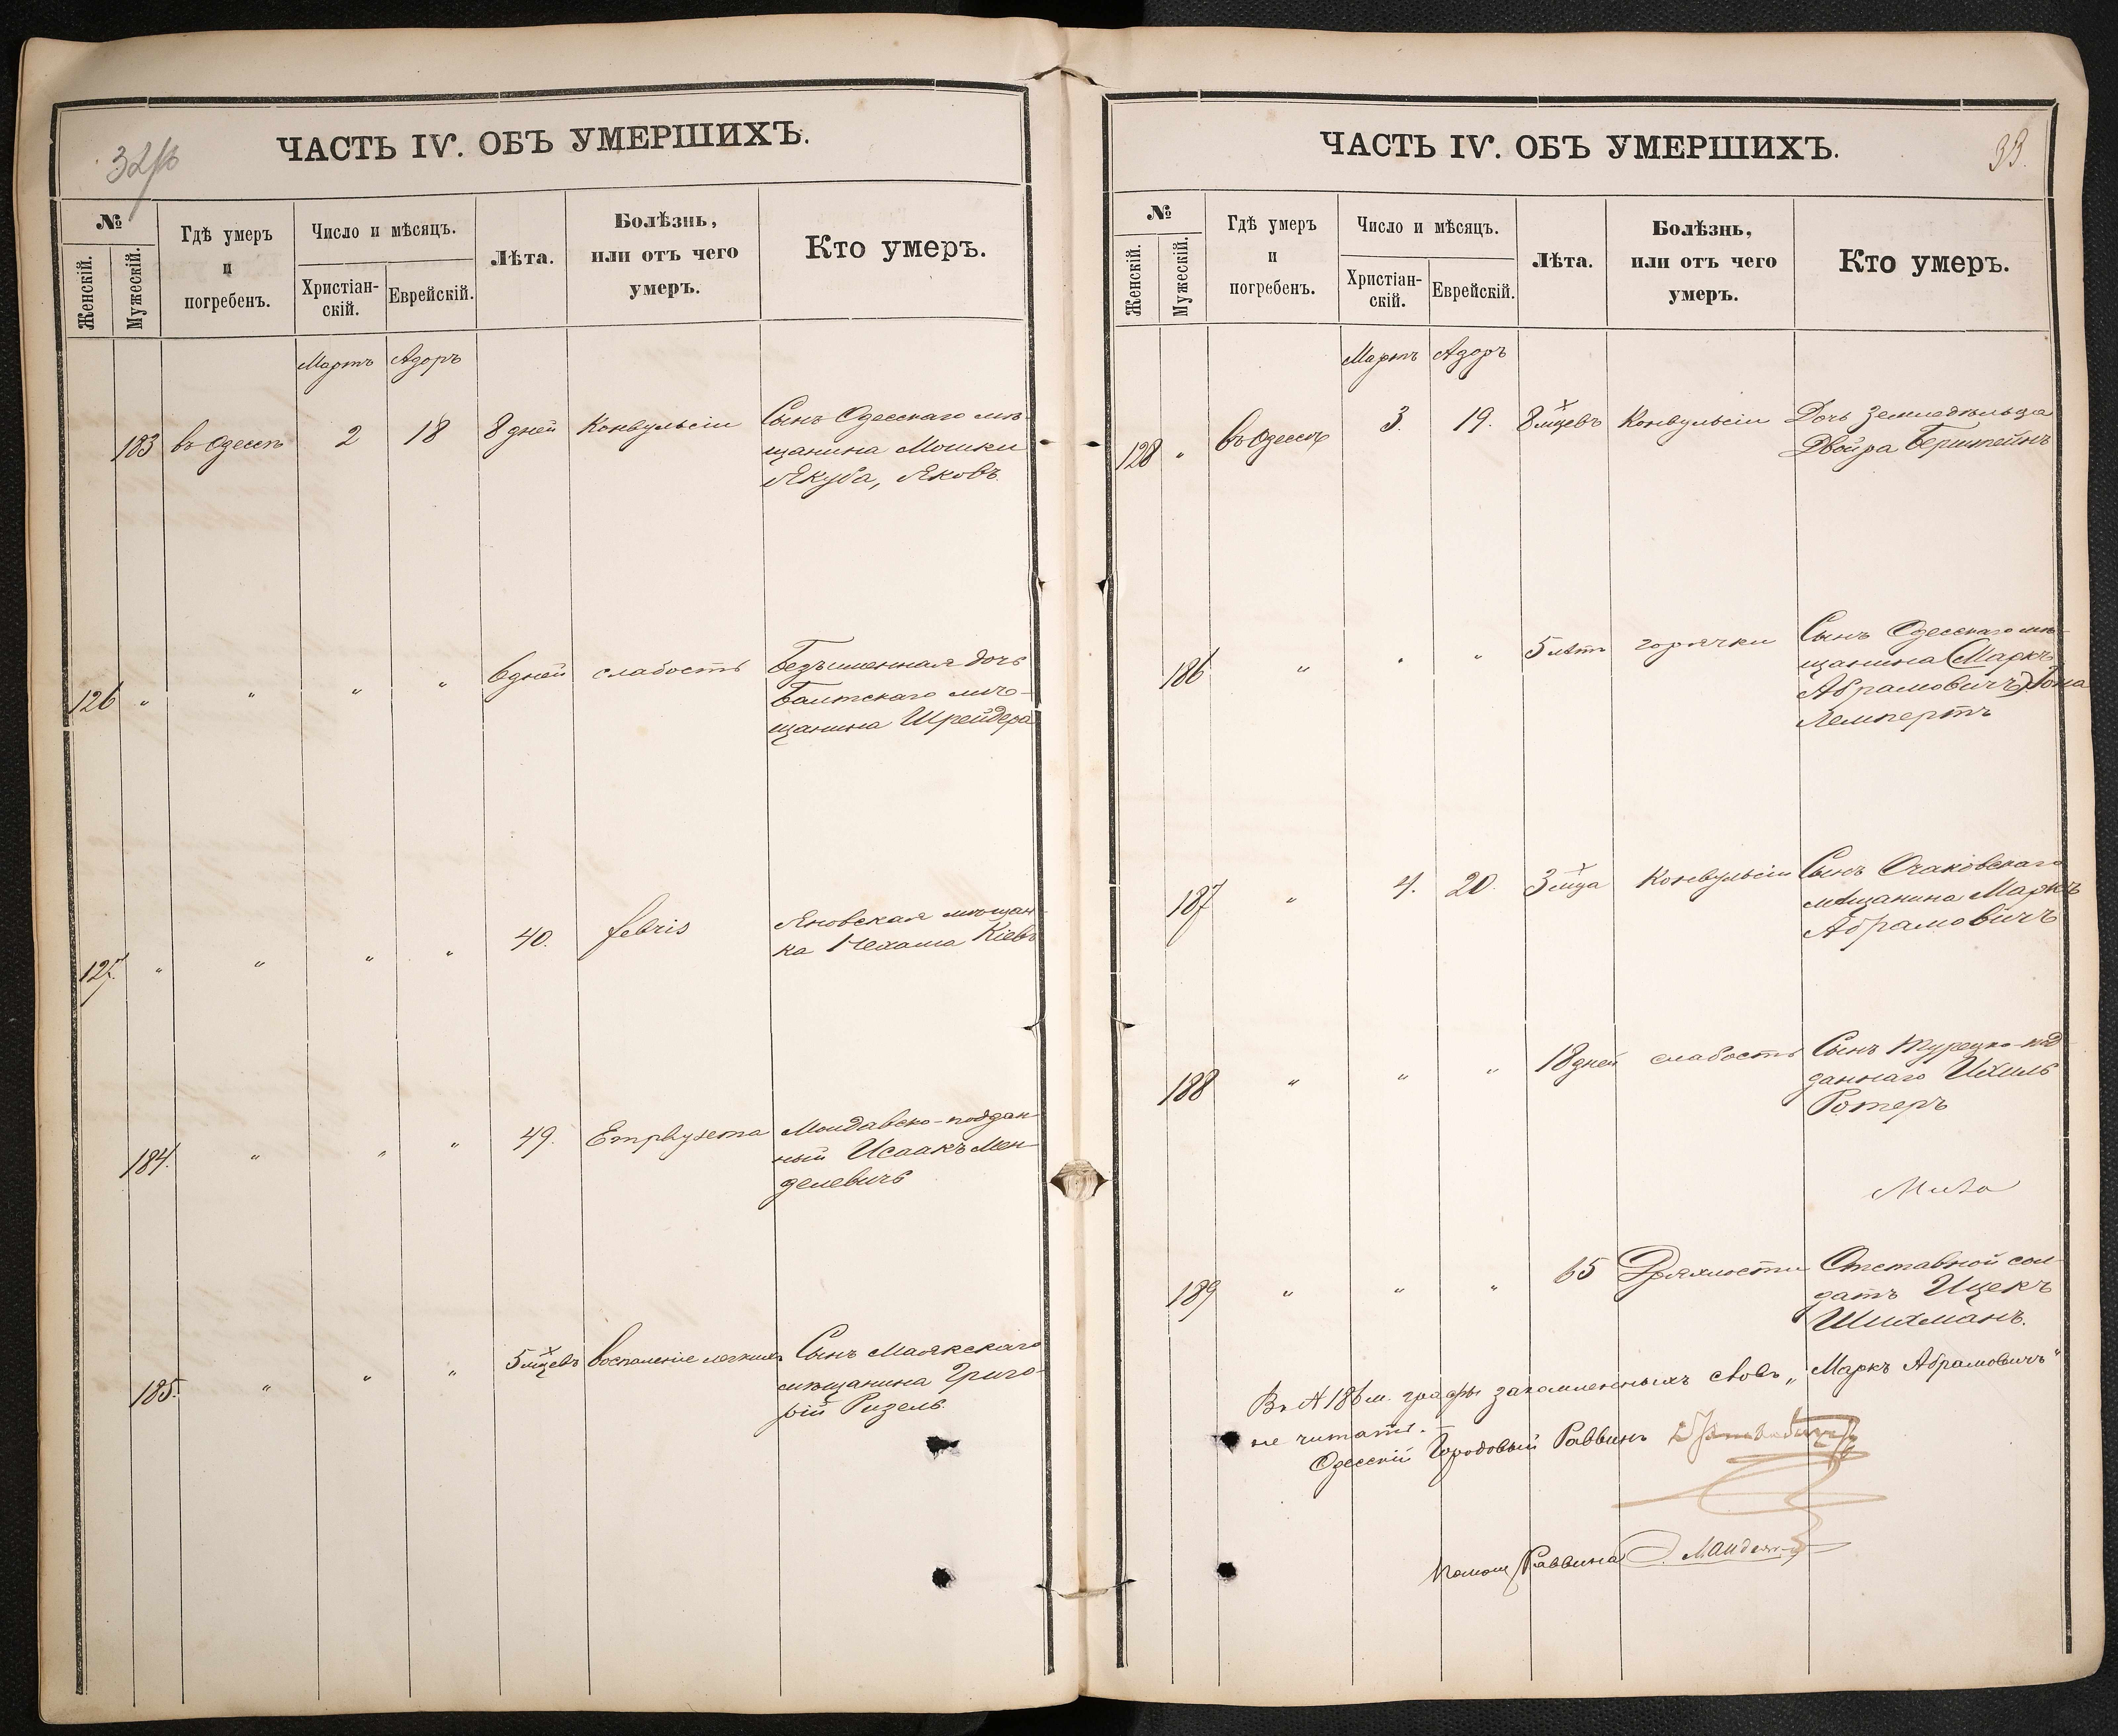 ЧАСТЬ IV. ОБЪ УМЕРШИХЪ.
№
Женскій.
Мужескій.
Гдѣ умеръ
и
погребенъ.
Число и мѣсяцъ.
Христіан-
скій.
Еврейскій.
Лѣта.
Болѣзнь,
или отъ чего
умеръ.
Кто умеръ.
Мартъ Адоръ
183 въ Одессѣ 2 18 8 дней Конвульсіи Сынъ Одесскаго мѣ-
щанина Мошки
Якуба, Яковъ.
126 " " " " 6 дней слабость Безъименная дочь
Балтскаго мѣ-
щанина Шрейдера
127. " " " " 40. febris Яновская мѣщан-
ка Нехама Кіевъ
184. " " " 49. Emphysema Молдавско-поддан-
ный Исаакъ Мен-
делевичъ
185. " " " 5 мцевъ воспаленіе легкихъ Сынъ Маякскаго
мѣщанина Григо-
рій Ризель.
ЧАСТЬ IV. ОБЪ УМЕРШИХЪ.
33.
№
Женскій.
Мужескій.
Гдѣ умеръ
и
погребенъ.
Число и мѣсяцъ.
Христіан-
скій.
Еврейскій.
Лѣта.
Болѣзнь,
или отъ чего
умеръ.
Кто умеръ.
Мартъ Адоръ
128 " въ Одессѣ 3. 19. 8 мцевъ Конвульсіи Дочь Земледѣльца
Двойра Берштейнъ
186 " " " 5 лѣтъ горячки Сынъ Одесскаго мѣ-
щанина (Маркъ
Абрамовичъ)
Лемпертъ
187 " 4. 20. 3 мца Конвульсіи Сынъ Очаковскаго
мѣщанина Маркъ
Абрамовичъ
188 " " " 18 дней слабость Сынъ Турецко-под-
даннаго Ихиль
Ротеръ
189 " " " 65 Дряхлости Отставной сол-
датъ Ицекъ
Шихманъ.
Въ № 186 м. графы закамленныхъ словъ „Маркъ Абрамовичъ"
не читать.
Одесскій Городовый Раввинъ
Помощ Раввина